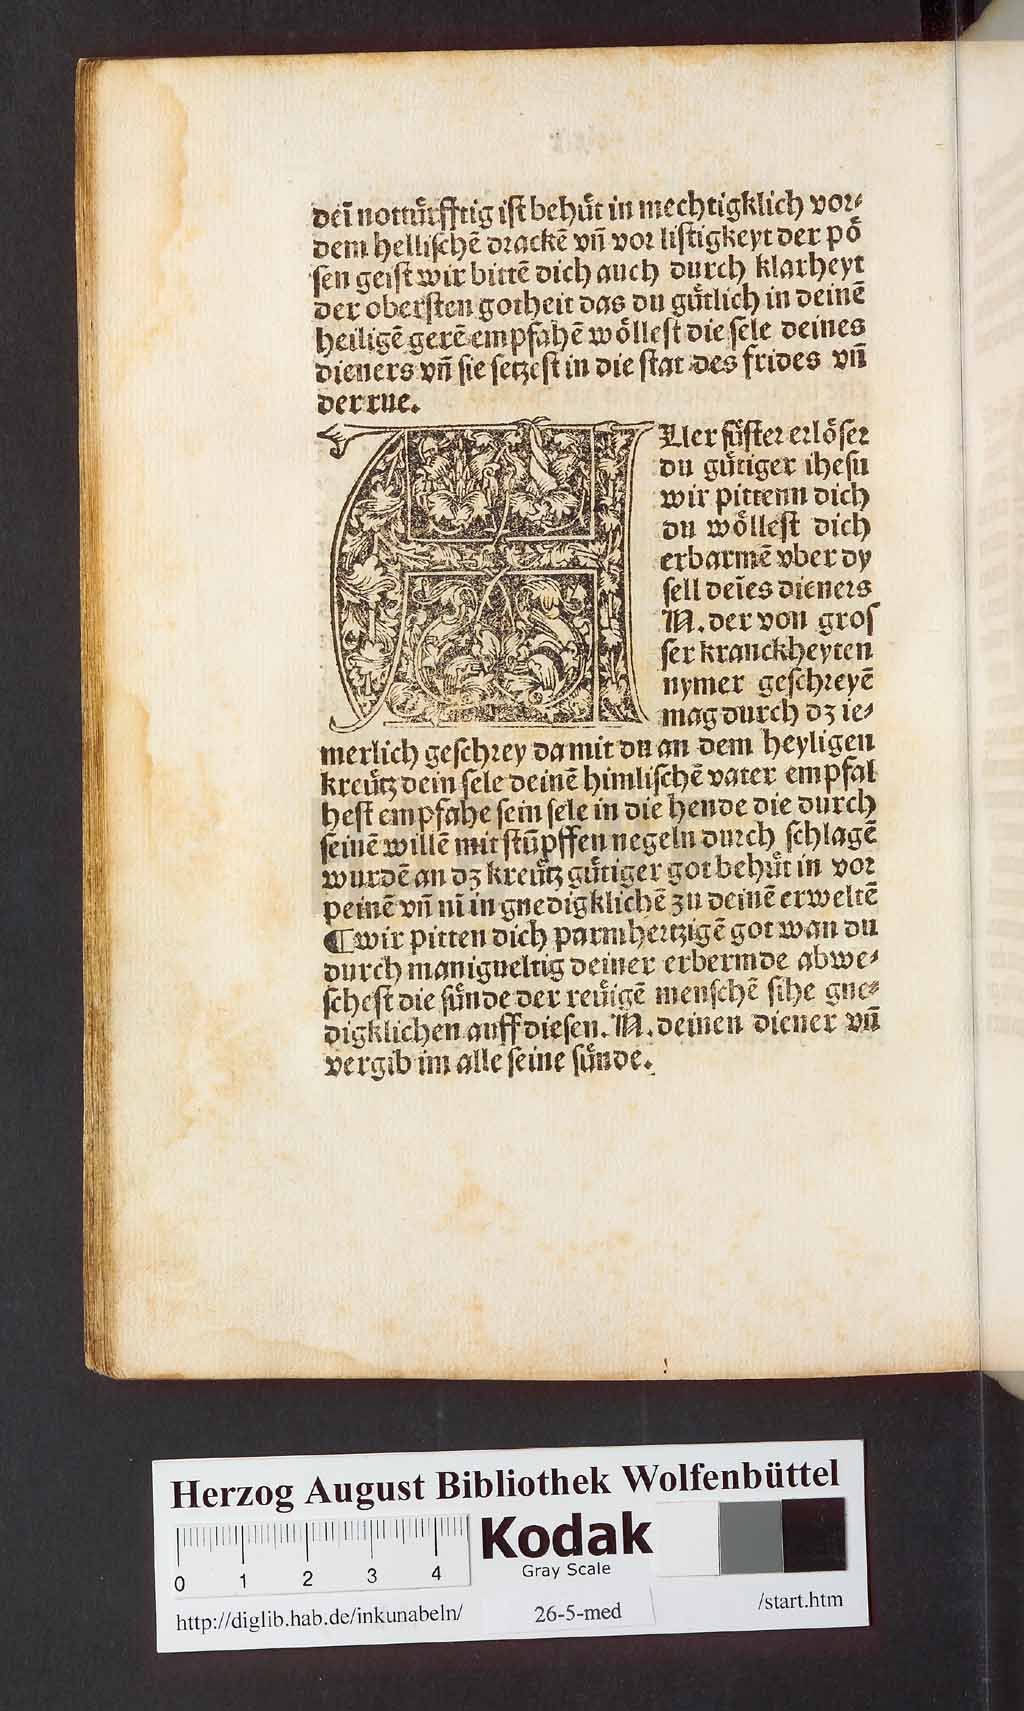 deī nottuͤrfftig ist behuͤt in mechtigklich vor⸗
dem hellischē drackē vñ vor listigkeyt der poͤ
sen geist wir bittē dich auch durch klarheyt
der obersten gotheit das du guͤtlich in deinē
heiligē gerē empfahē woͤllest die sele deines
dieners vñ sie setzest in die stat des frides vñ
der rue.
ALler suͤster erloͤser
du guͤtiger ihesu
wir pittenn dich
du woͤllest dich
erbarmē vber dy
sell deīes dieners
N. der von gros
ser kranckheyten
nymer geschreyē
mag durch dz ie⸗
merlich geschrey da mit du an dem heyligen
kreuͤtz dein sele deinē himlischē vater empfal
hest empfahe sein sele in die hende die durch
seinē willē mit stūpffen negeln durch schlagē
wurdē an dz kreuͤtz guͤtiger got behuͤt in vor
peinē vñ nī in gnedigklichē zu deinē erweltē
¶ wir pitten dich parmhertzigē got wan du
durch manigueltig deiner erbermde abwe⸗
schest die suͤnde der reuͤigē menschē sihe gne⸗
digklichen auff diesen. N. deinen diener vñ
vergib im alle seine suͤnde.
Herzog August Bibliothek Wolfenbüttel
Kodak
Gray Scale
0 1 2 3 4
http://diglib.hab.de/inkunabeln/ 26-5-med /start.htm